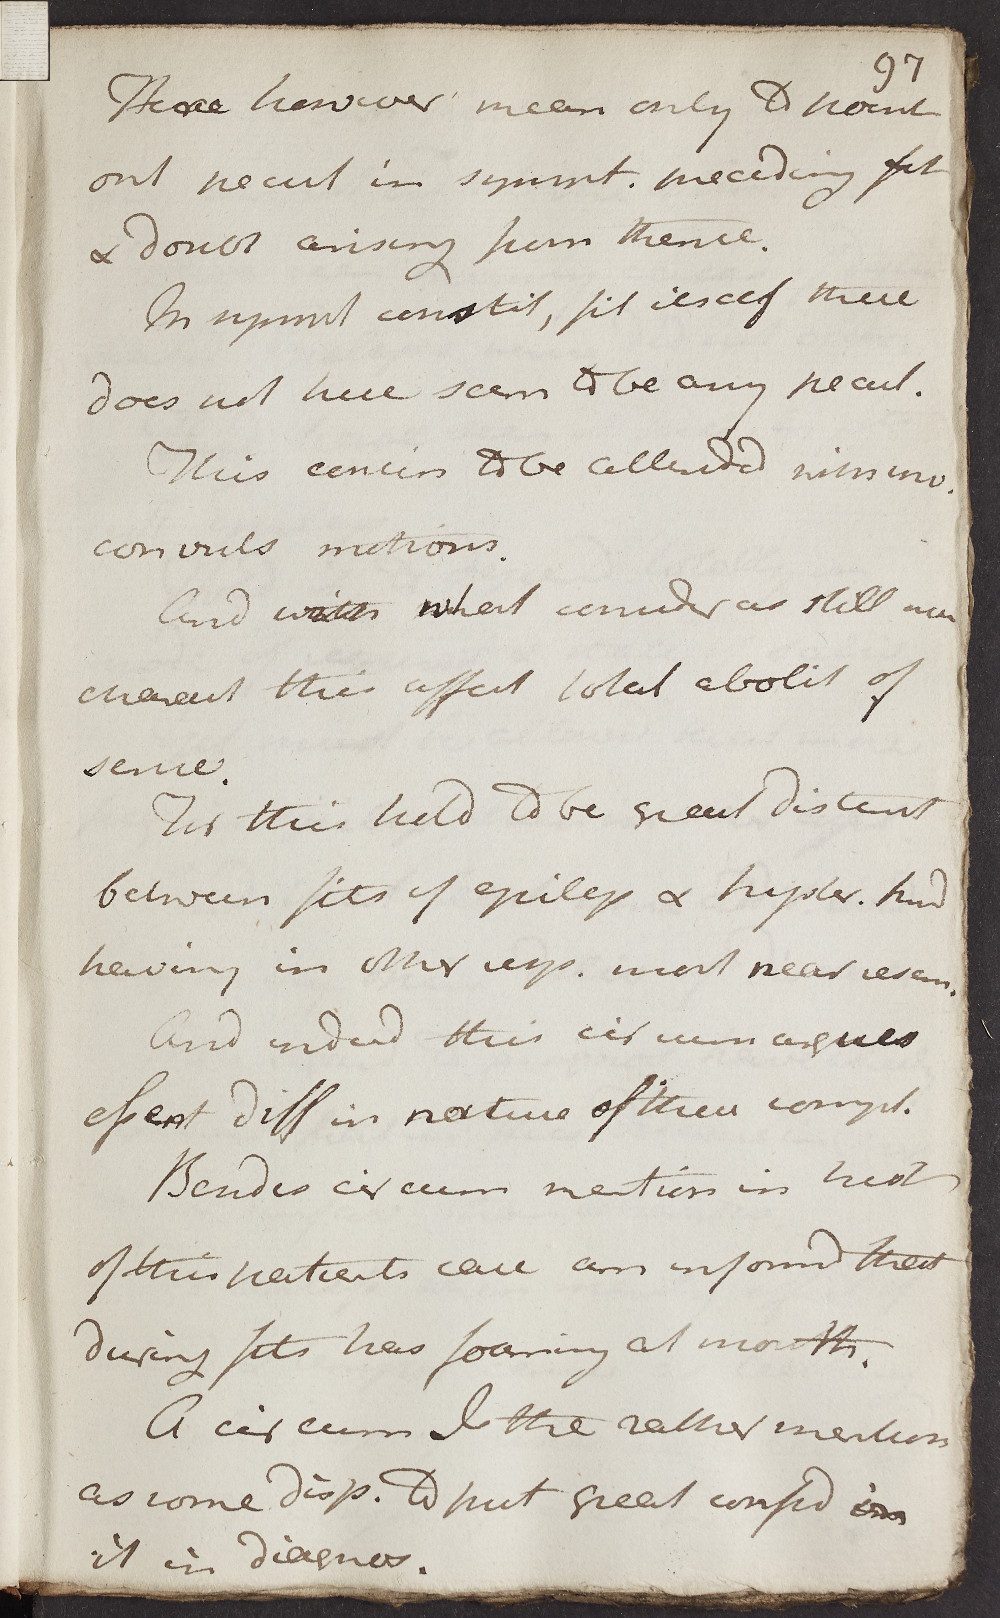 97
Here however mean only to point
out pecul in sympt. preceding fit
& doubt arising from thence.
In sympt constit, fit itself there
does not here seem to be any pecul.
This concurs to be attended with inv.
convuls motions.
And with what consider as still more
charact this affect total abolit of
sense.
For this held to be great distinct
between fits of epilep & hyster. kind
having in other resp. most near resem.
And indeed this circum argues
essent diff in nature of these compl.
Besides circum mention in hist
of this patients case am informd that
during fits has foaming at mouth.
A circum I the rather mention
as some disp. to put great confid in
it in diagnos.